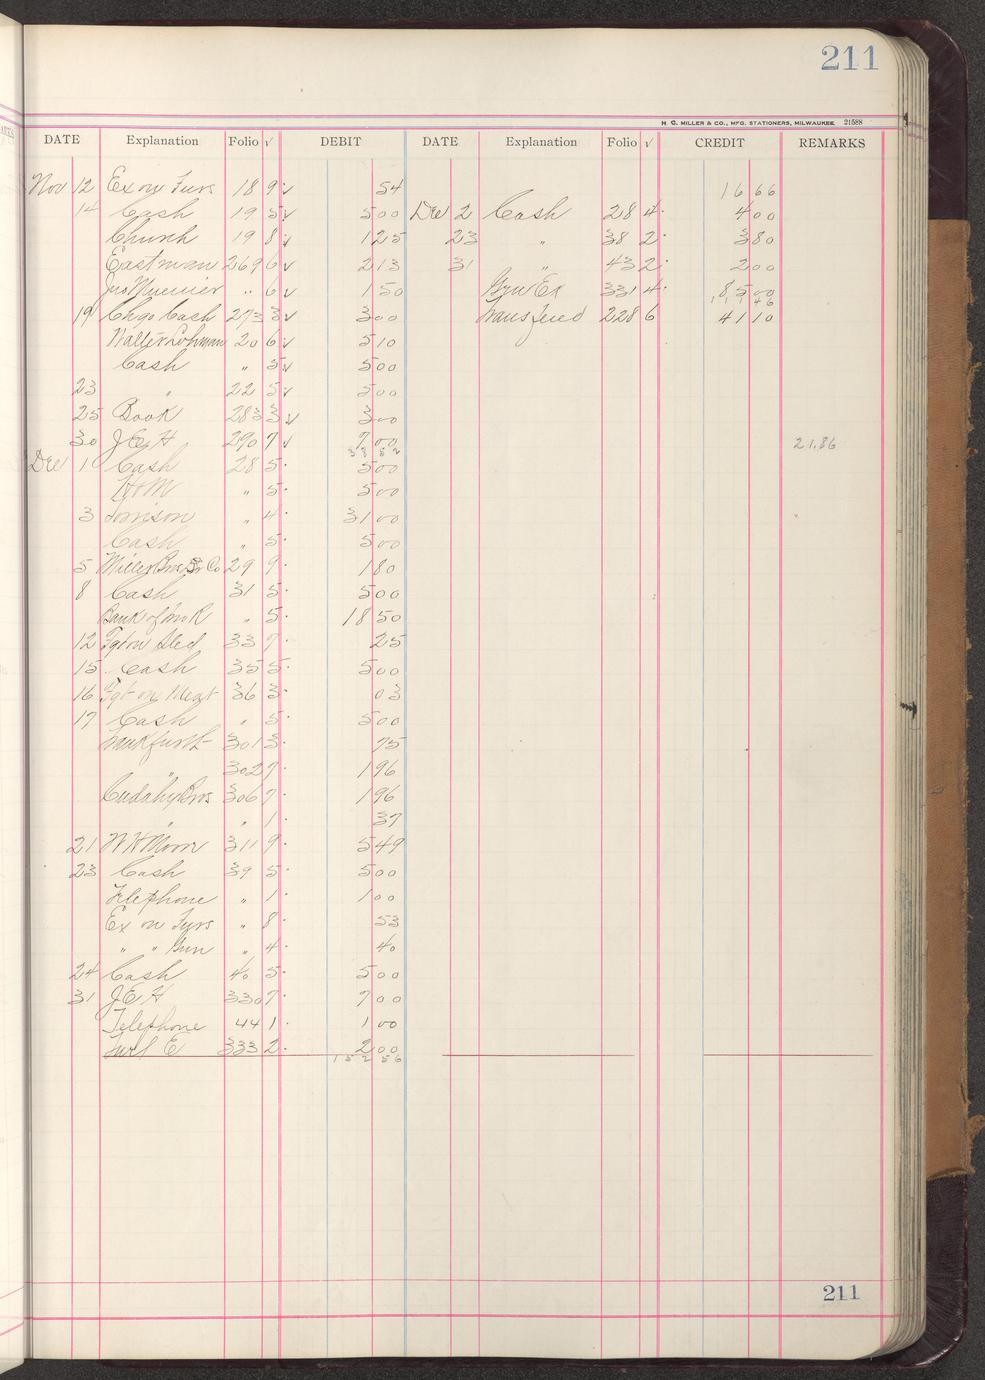 211
H. G. MILLER & CO., MFG. STATIONERS, MILWAUKEE 21588
DATE Explanation Folio √ DEBIT DATE Explanation Folio √ CREDIT REMARKS
Nov 12 Ex on Furs 18 9 √ 54 16 66
14 Cash 19 5 √ 5 00 Dec 2 Cash 28 4 4 00
Church 19 8 √ 1 25 23 " 38 2 3 80
Eastman 269 6 √ 2 13 31 " 43 2 2 00
Jno Meunier " 6 √ 1 50 Gen Ex 331 4 85 00
19 Chgo Cash 273 3 √ 3 00 Transfered 228 6 41 10
Walter Lohman 20 6 √ 5 10
Cash " 5 √ 5 00
23 " 22 5 √ 5 00
25 Book 283 3 √ 3 00
30 J E H 290 7 √ 7 00 21.86
38 52
Dec 1 Cash 28 5 5 00
H & M " 5 5 00
3 " 4 31 00
Cash " 5 5 00
5 Miller Bros Co 29 9 1 80
8 Cash 31 5 5 00
Bank of " 5 18 50
12 Fgt on Sled 33 7 25
15 Cash 35 5 5 00
16 Fgt on Meat 36 3 03
17 Cash " 5 5 00
Frankfurth 301 3 75
" 302 7 1 96
Cudahy Bros 306 7 1 96
" " 1 37
21 W H Moon 311 9 5 49
23 Cash 39 5 5 00
Telephone " 1 1 00
Ex on Furs " 8 53
" " Gun " 4 40
24 Cash 40 5 5 00
31 J E H 330 7 7 00
Telephone 44 1 1 00
333 2 2 00
152 56
211